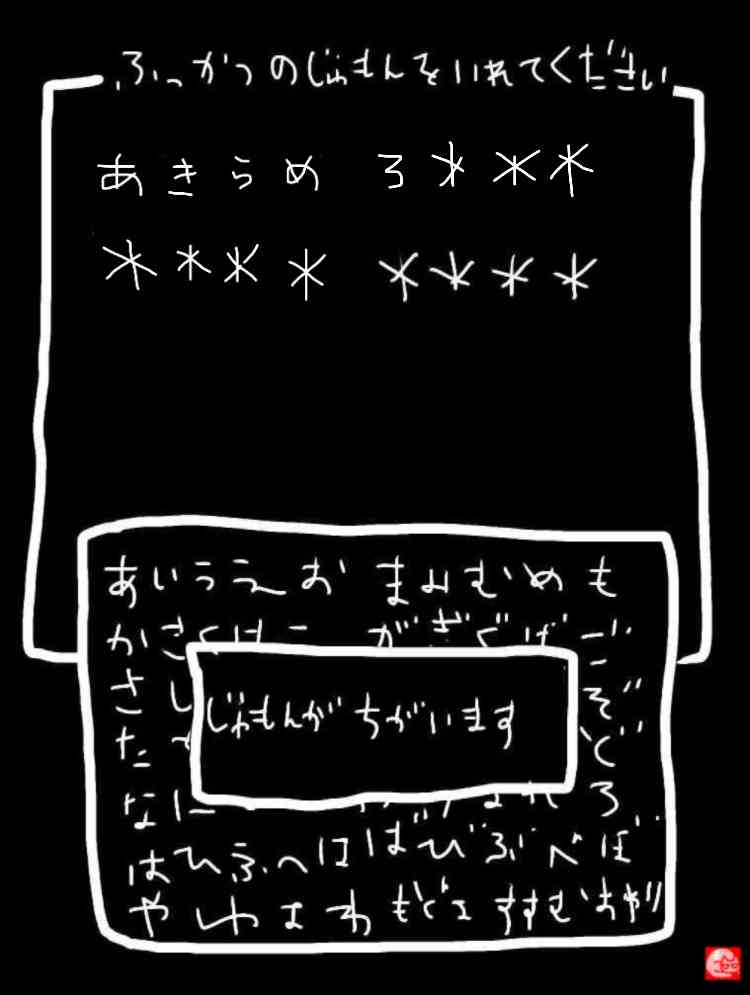 ふっかつのじゅもんをいれてください
あきらめ ろ***
**** ****
あいうえお まみむめも
かきくけこ がぎぐげご
さし
ぞ
た
ど
なに
れろ
はひふへほばびぶべぼ
やゆよわ もどる すすむ おわり
じゅもんが ちがいます